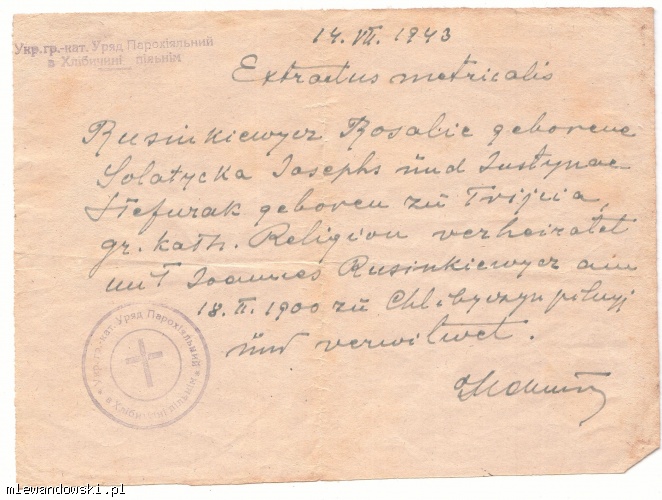 Укр.гр.-кат. Уряд Парохіяльний
в Хлібичині пільнім
14. VII. 1943
Extractus metricalis
Rusinkiewycz Rosalie geborene
Solatycka Josephs ünd Justynae
Stefurak geboren zü Trijcia,
gr. kath. Religion verheiratet
mit Joannes Rusinkiewycz am
18. II. 1900 zü Chlibyczyn pilnyj
ünd verwitwet.
Укр.гр.-кат. Уряд Парохіяльний
в Хлібичині пільнім
mlewandowski.pl